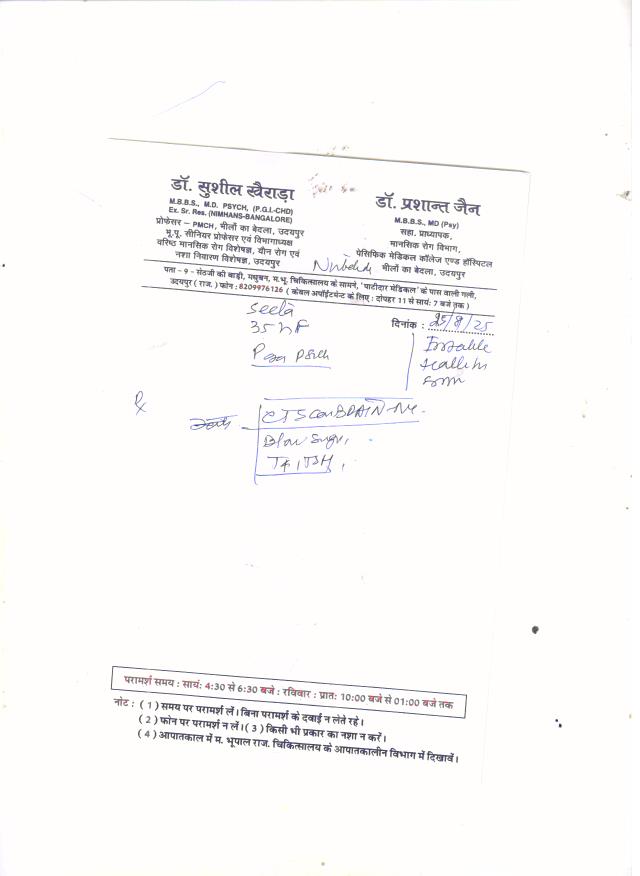 डॉ. सुशील खैराड़ा
M.B.B.S., M.D. PSYCH, (P.G.I.-CHD)
Ex. Sr. Res. (NIMHANS-BANGALORE)
प्रोफेसर – PMCH, भीलों का बेदला, उदयपुर
भू.पू. सीनियर प्रोफेसर एवं विभागाध्यक्ष
वरिष्ठ मानसिक रोग विशेषज्ञ, यौन रोग एवं
नशा निवारण विशेषज्ञ, उदयपुर
डॉ. प्रशान्त जैन
M.B.B.S., MD (Psy)
सहा. प्राध्यापक,
मानसिक रोग विभाग,
पेसिफिक मेडिकल कॉलेज एण्ड हॉस्पिटल
भीलों का बेदला, उदयपुर
पता – 9 - सेठजी की बाड़ी, मधुबन, म.भू. चिकित्सालय के सामने, 'पाटीदार मेडिकल' के पास वाली गली,
उदयपुर ( राज. ) फोन : 8209976126 ( केवल अपॉईंटमेन्ट के लिए : दोपहर 11 से सायं: 7 बजे तक )
Seela
दिनांक : 25/8/25
35
℞
CT Scan BRAIN
T4, TSH,
परामर्श समय : सायं: 4:30 से 6:30 बजे : रविवार : प्रात: 10:00 बजे से 01:00 बजे तक
नोट : ( 1 ) समय पर परामर्श लें। बिना परामर्श के दवाई न लेते रहे।
( 2 ) फोन पर परामर्श न लें। ( 3 ) किसी भी प्रकार का नशा न करें।
( 4 ) आपातकाल में म. भूपाल राज. चिकित्सालय के आपातकालीन विभाग में दिखावें।